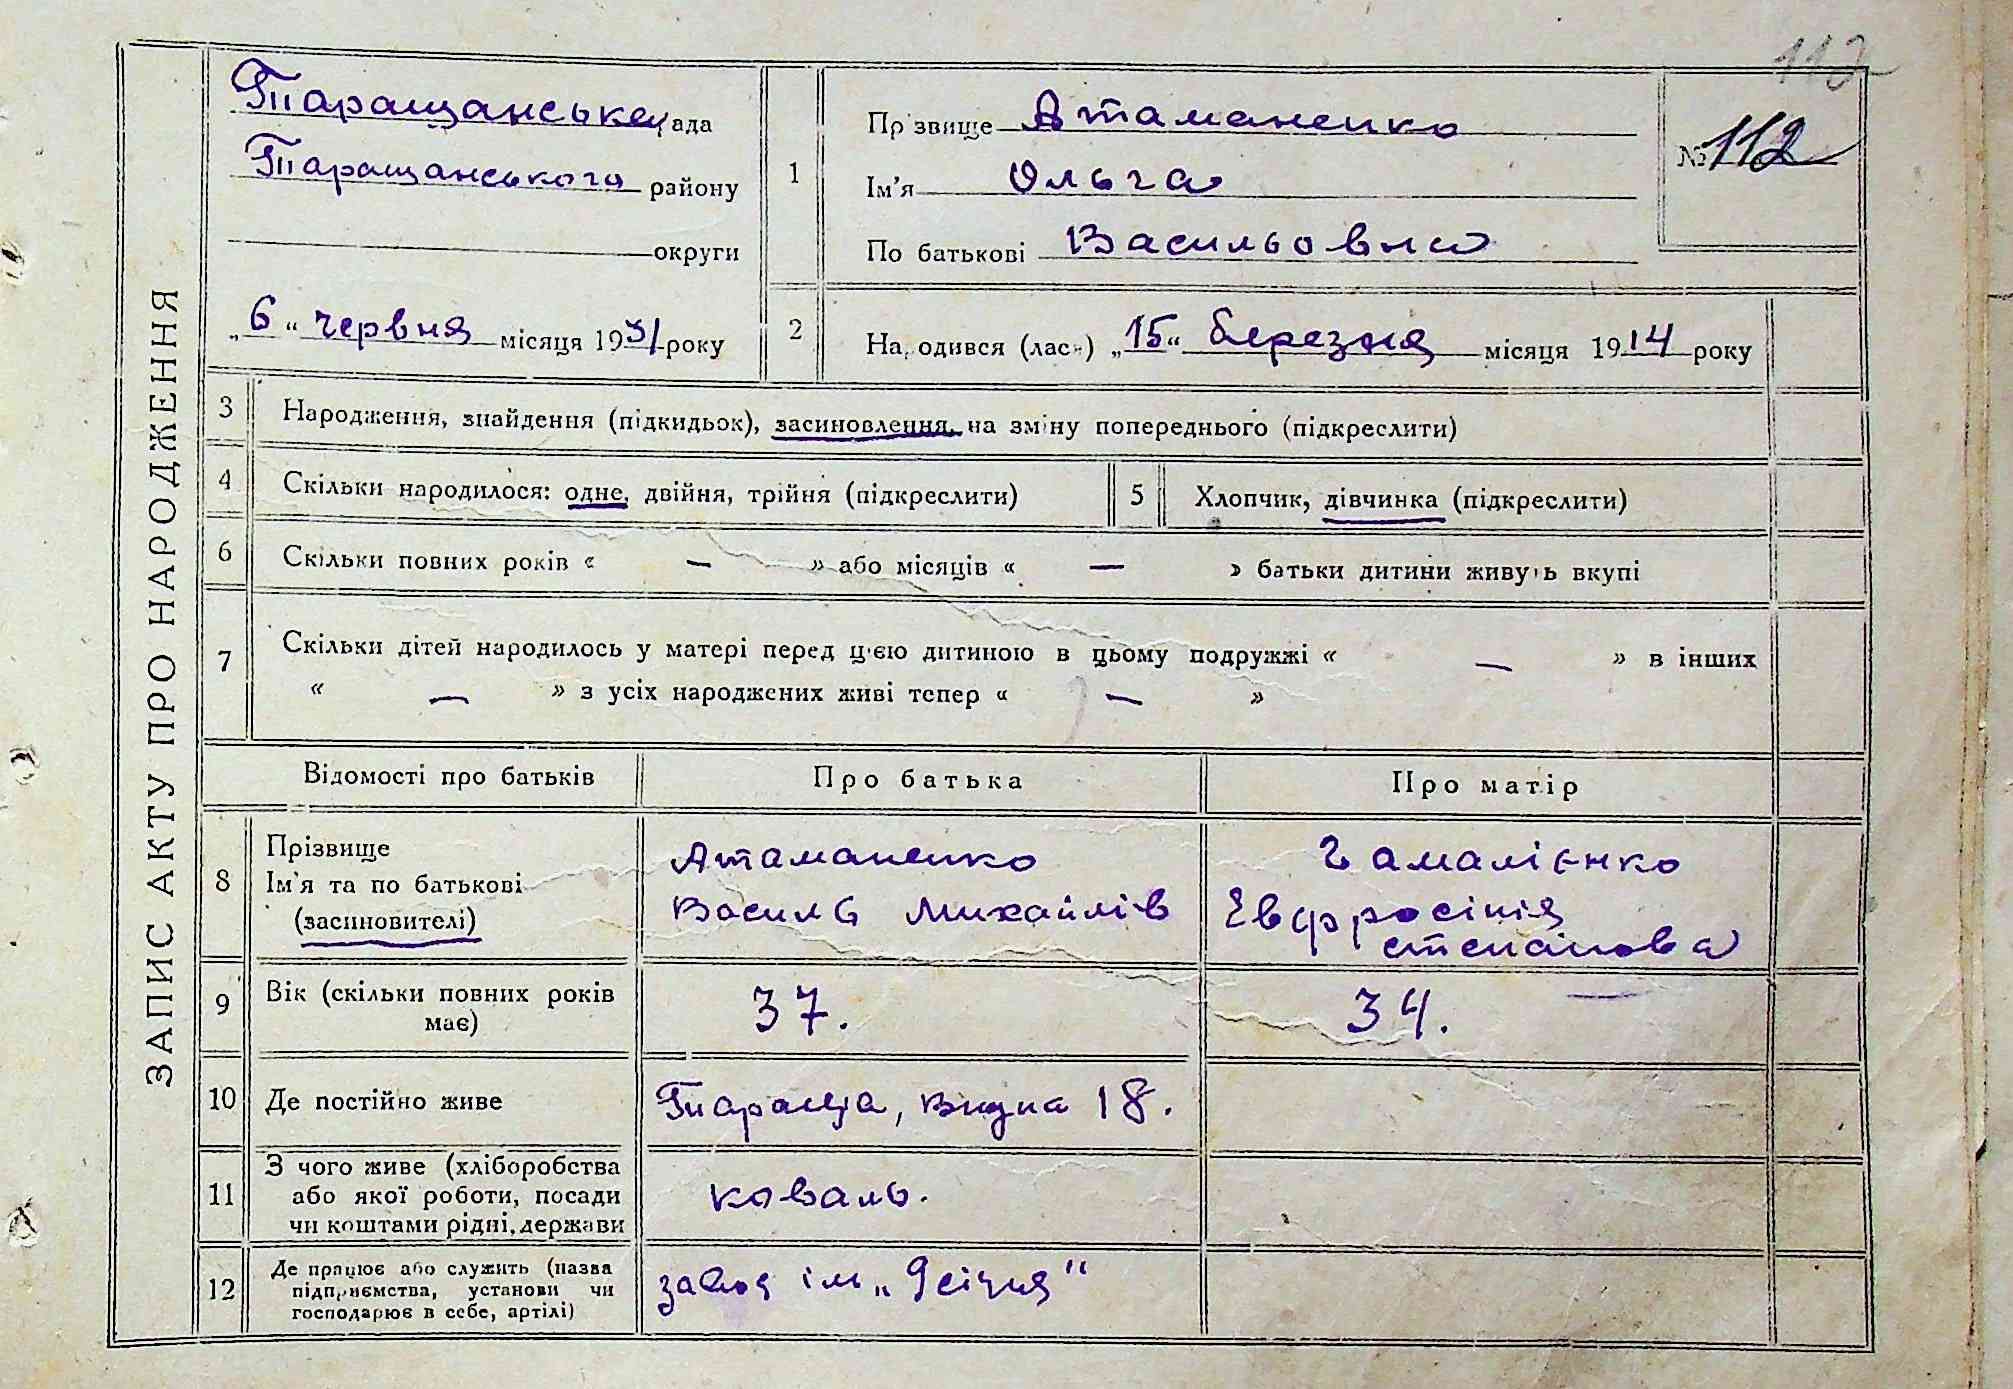 113
ЗАПИС АКТУ ПРО НАРОДЖЕННЯ
Таращанська рада
Таращанського району
округи
„6“ червня місяця 1931 року
1
Прізвище Атаманенко
Ім'я Ольга
По батькові Васильовна
№ 112
2
Народився (лась) „15“ березня місяця 1914 року
3
Народження, знайдення (підкидьок), засиновлення, на зміну попереднього (підкреслити)
4
Скільки народилося: одне, двійня, трійня (підкреслити)
5
Хлопчик, дівчинка (підкреслити)
6
Скільки повних років « — » або місяців « — » батьки дитини живуть вкупі
7
Скільки дітей народилось у матері перед цією дитиною в цьому подружжі « — » в інших
« — » з усіх народжених живі тепер « — »
Відомості про батьків
Про батька
Про матір
8
Прізвище
Ім'я та по батькові
(засиновителі)
Атаманенко
Василь Михайлів
Гамалієнко
Евфросінія
степанова
9
Вік (скільки повних років
має)
37.
34.
10
Де постійно живе
Тараща, 18.
11
З чого живе (хліборобства
або якої роботи, посади
чи коштами рідні, держави
коваль.
12
Де працює або служить (назва
підприємства, установи чи
господарює в себе, артілі)
завод ім „9 січня“